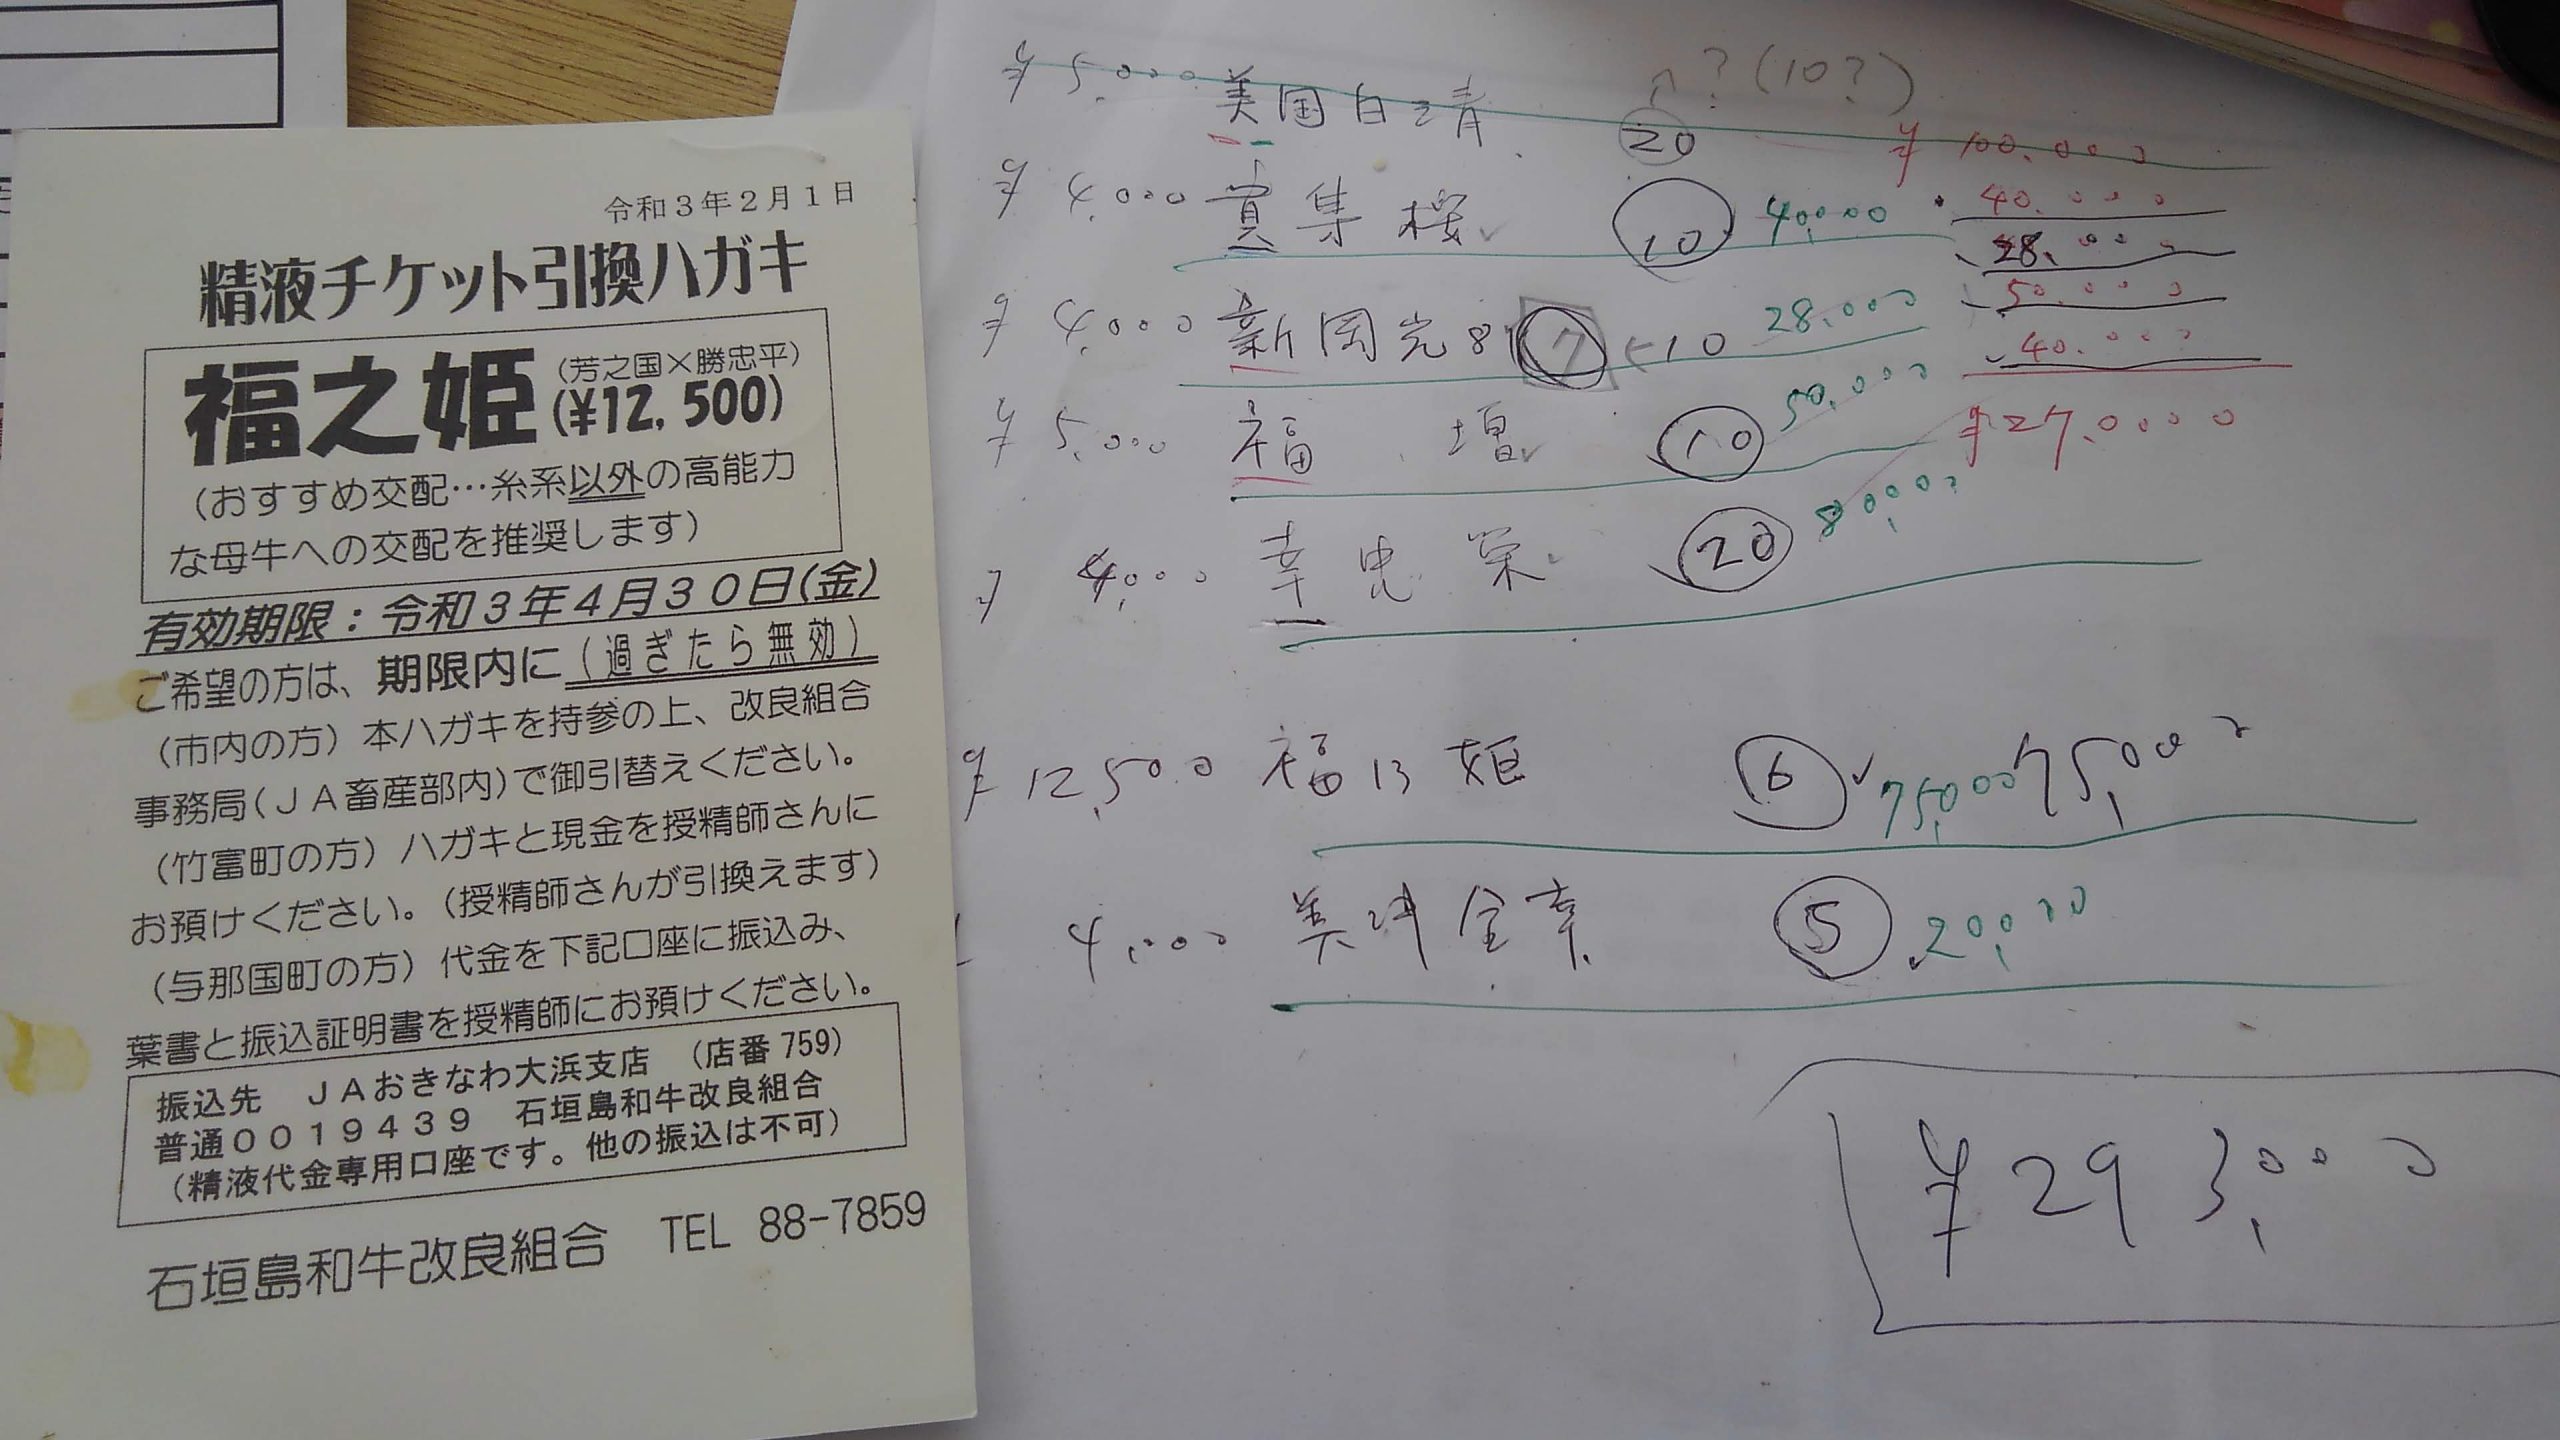 令和3年2月1日
精液チケット引換ハガキ
福之姫 (芳之国×勝忠平)
(¥12,500)
(おすすめ交配…糸系以外の高能力
な母牛への交配を推奨します)
有効期限：令和3年4月30日(金)
ご希望の方は、期限内に(過ぎたら無効)
(市内の方)本ハガキを持参の上、改良組合
事務局(JA畜産部内)で御引替えください。
(竹富町の方)ハガキと現金を授精師さんに
お預けください。(授精師さんが引換えます)
(与那国町の方)代金を下記口座に振込み、
葉書と振込証明書を授精師にお預けください。
振込先 JAおきなわ大浜支店 (店番759)
普通0019439 石垣島和牛改良組合
(精液代金専用口座です。他の振込は不可)
石垣島和牛改良組合 TEL 88-7859
?(10?)
¥5,000 美国白清 20 ¥100,000
¥4,000 實集桜 10 40,000 40,000
28,000
¥4,000 新岡光81 7 ←10 28,000 50,000
40,000
¥5,000 福増 10 50,000 ¥27,0000
4,000 幸忠栄 20 80,000
¥12,500 福之姫 6 75,000 75,000
4,000 美津金幸 5 20,000
¥293,000